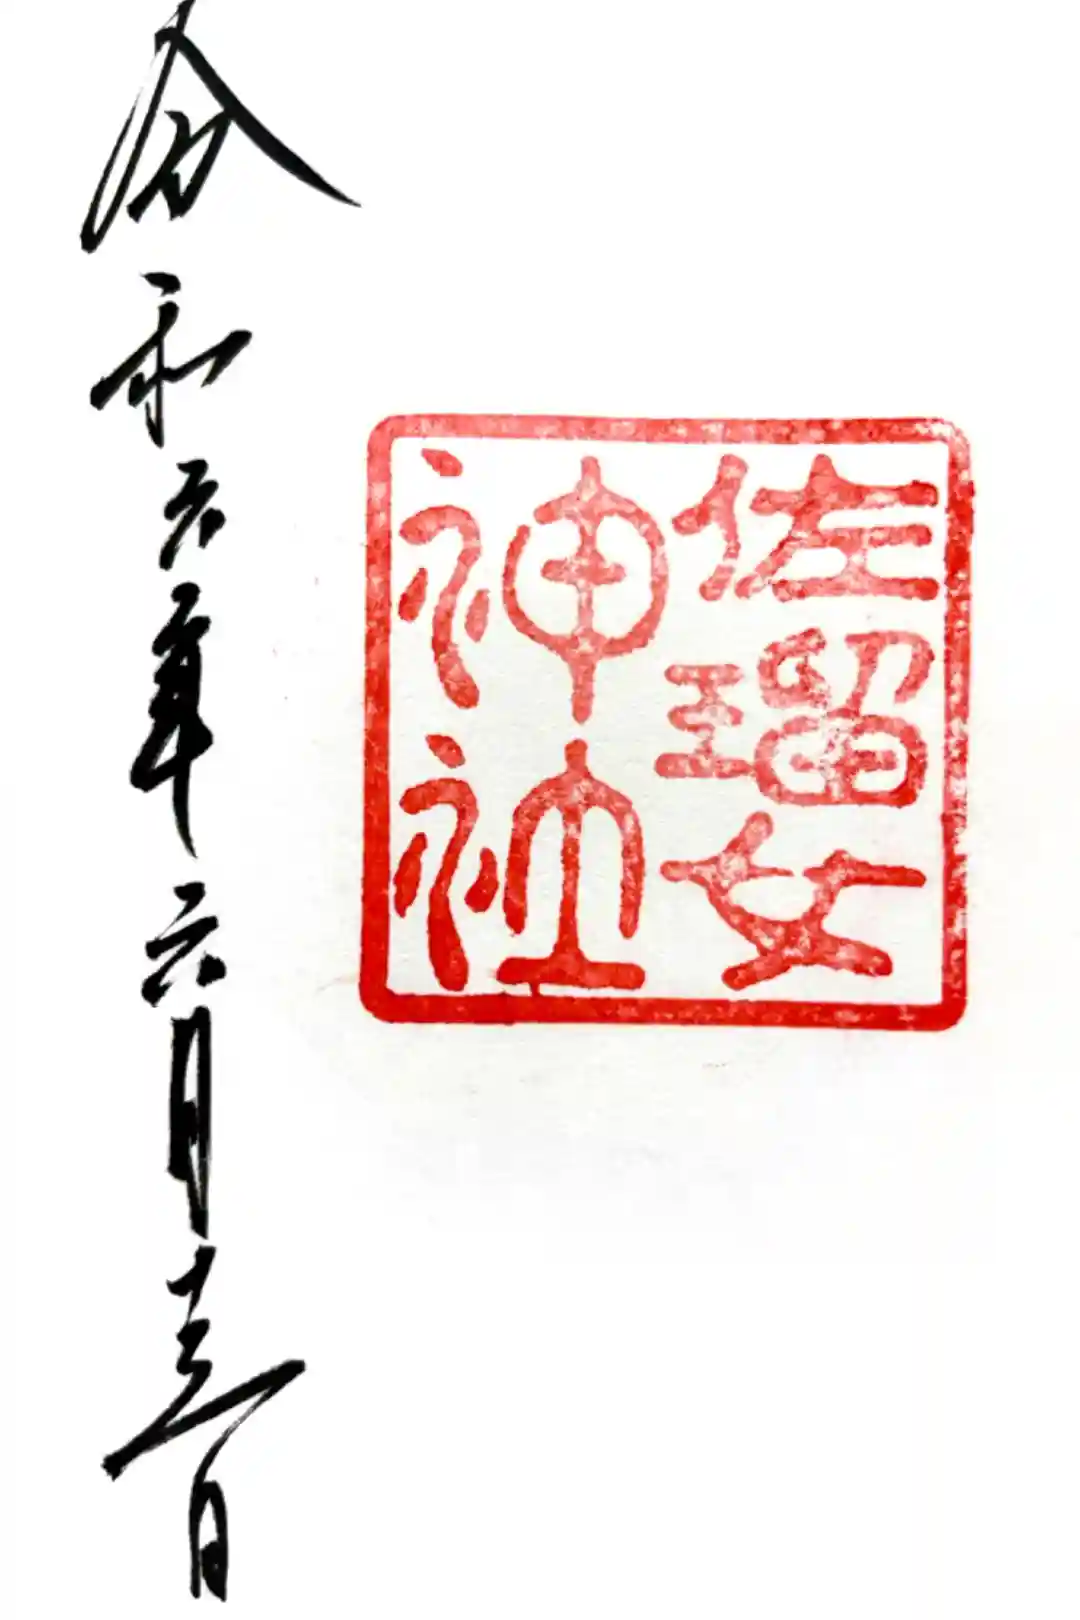 佐瑠女
神社
令和六年六月十三日